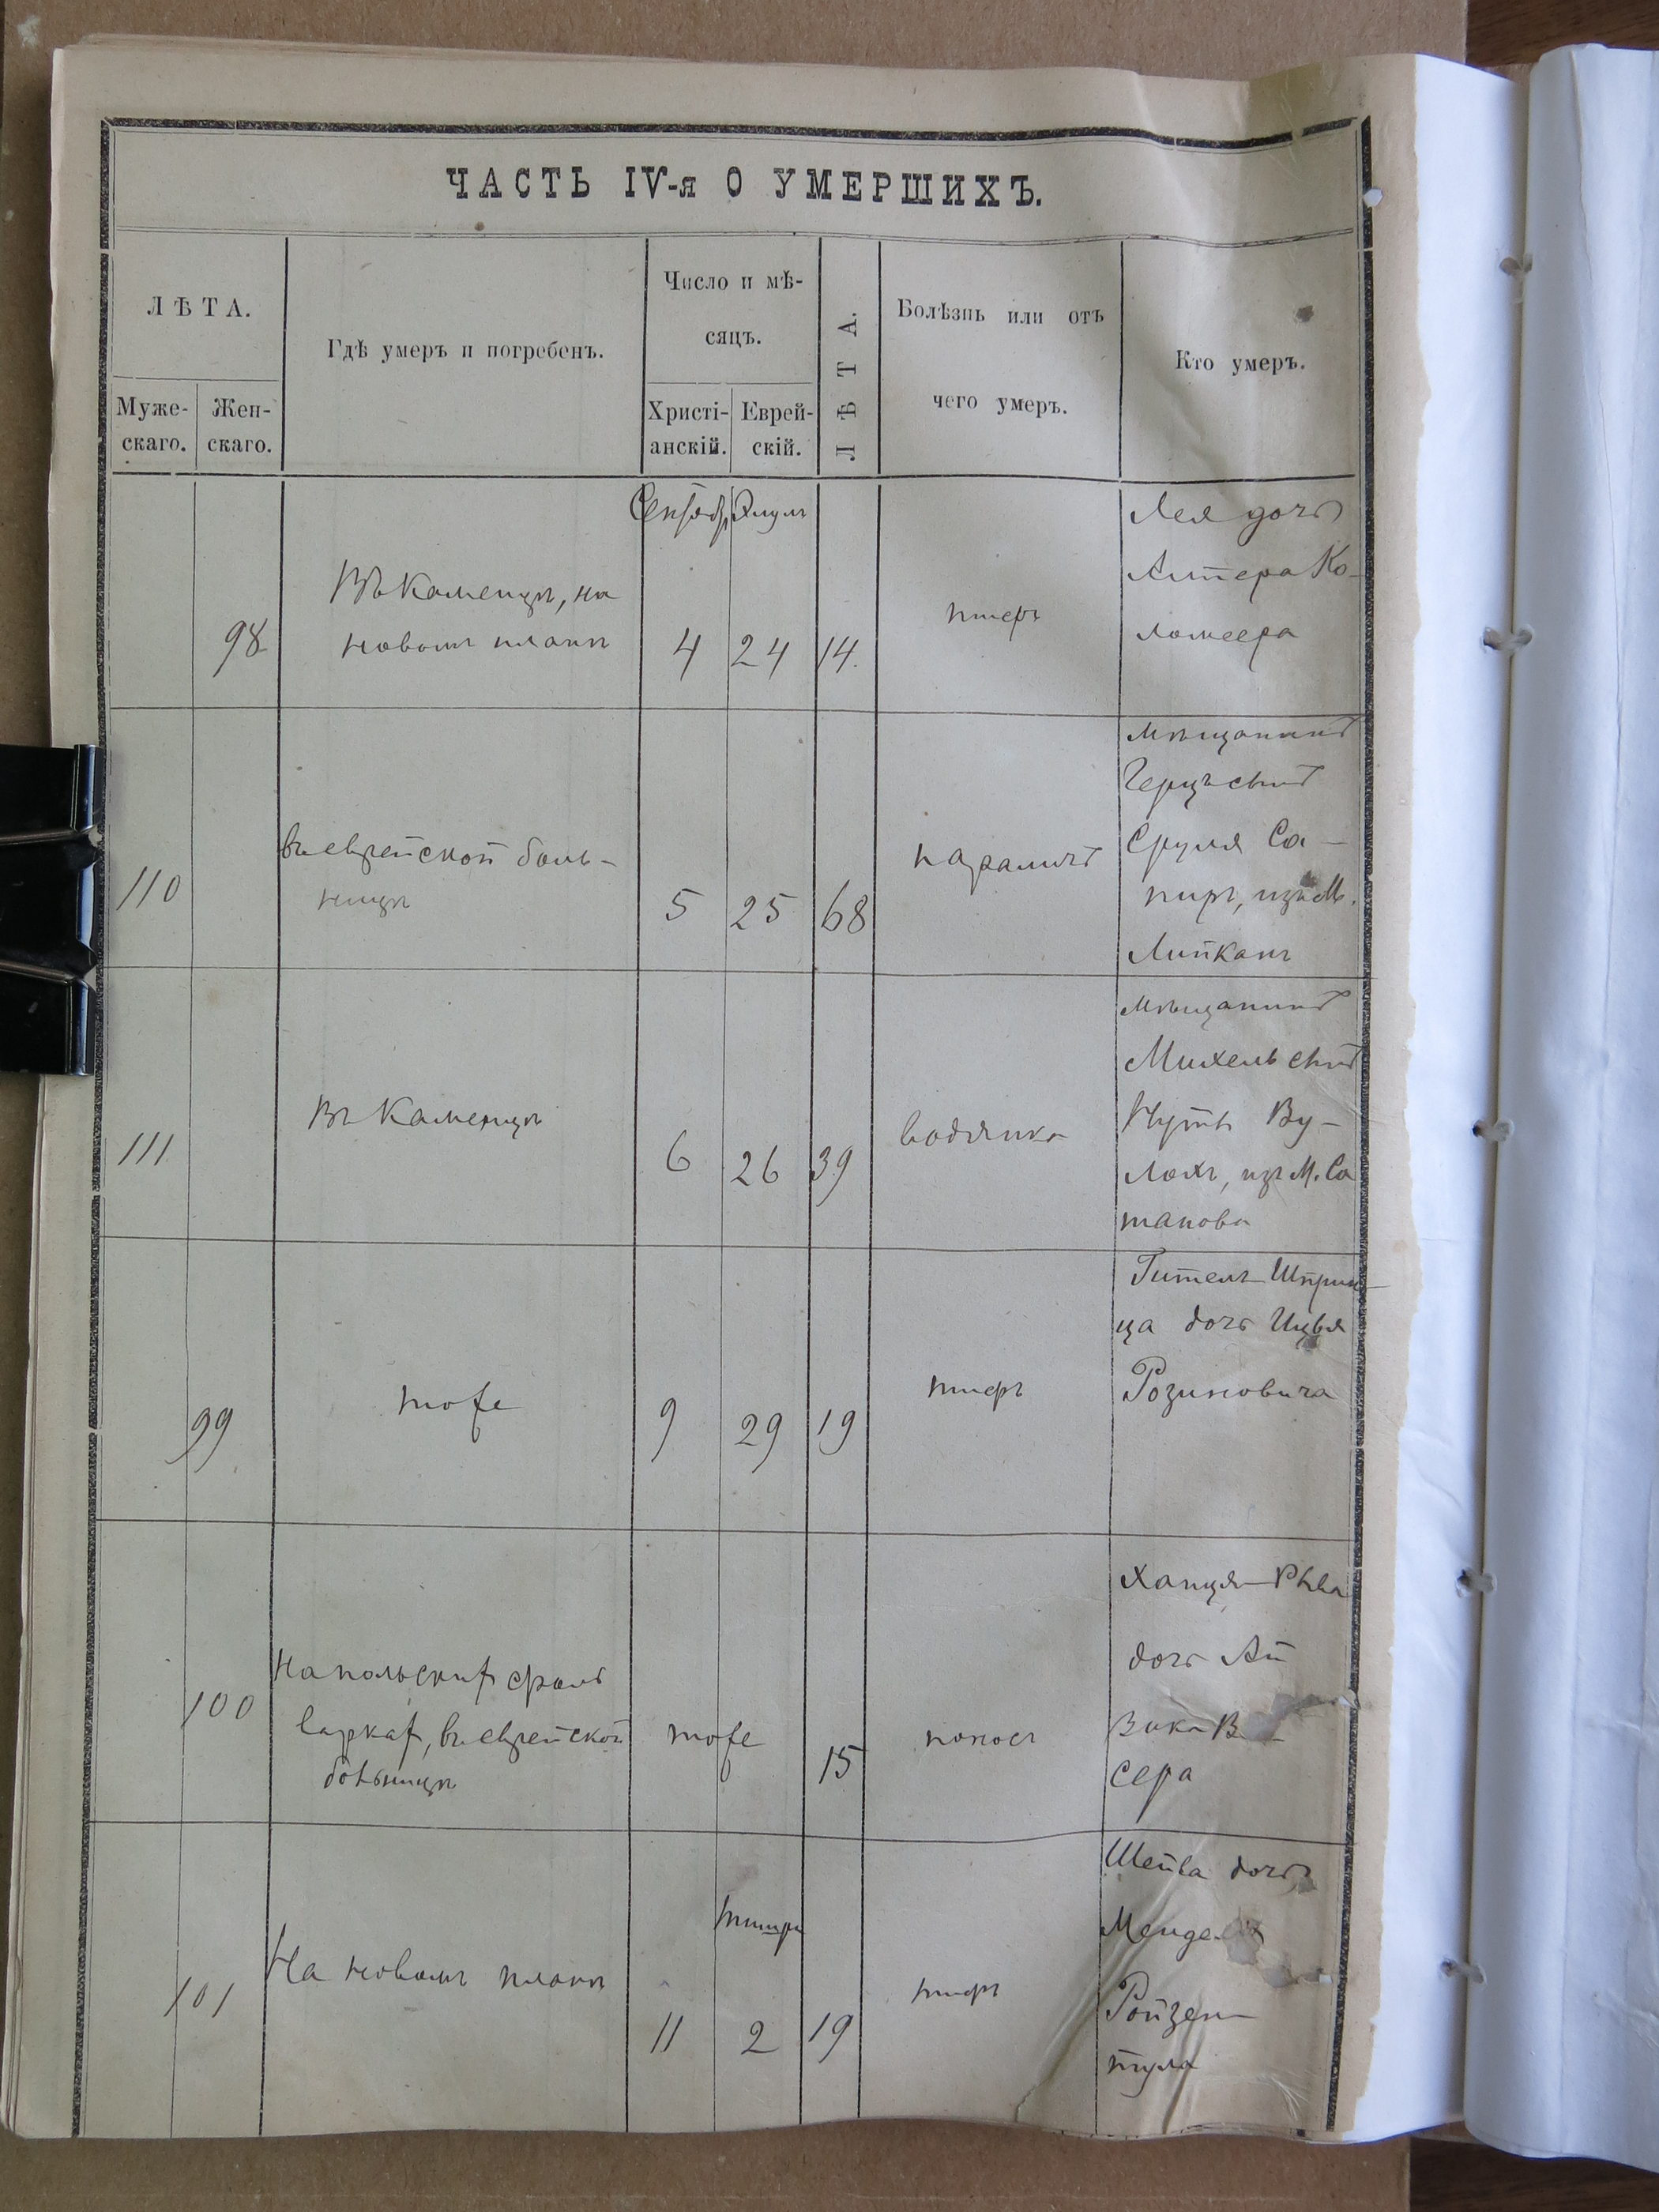 ЧАСТЬ IV-я О УМЕРШИХЪ.
ЛѢТА.
Муже-
скаго.
Жен-
скаго.
Гдѣ умеръ и погребенъ.
Число и мѣ-
сяцъ.
Христі-
анскій.
Еврей-
скій.
ЛѢТА.
Болѣзнь или отъ
чего умеръ.
Кто умеръ.
Сентябр Элулъ
98
Въ Каменцѣ, на
новомъ планѣ
4
24
14
тифъ
Лея дочь
Алтера Ко-
ломеера
110
въ еврейской боль-
ницѣ
5
25
68
параличъ
мѣщанинъ
Герцъ сынъ
Сруля Са-
пиръ, изъ М.
Липканъ
111
Въ Каменцѣ
6
26
39
водянка
мѣщанинъ
Михель сынъ
Нуты Ву-
лахъ, изъ М. Са
танова
99
тоже
9
29
19
тифъ
Гитель-Шприн-
ца дочь
Розиновича
100
На польскихъ фоль
варкахъ, въ еврейской
больницѣ
тоже
15
поносъ
Ханця-Рыва
дочь Ай
зика
сера
101
На новомъ планѣ
11
тишри
2
19
тифъ
Шейва дочь
Менделя
Ройзен-
тула